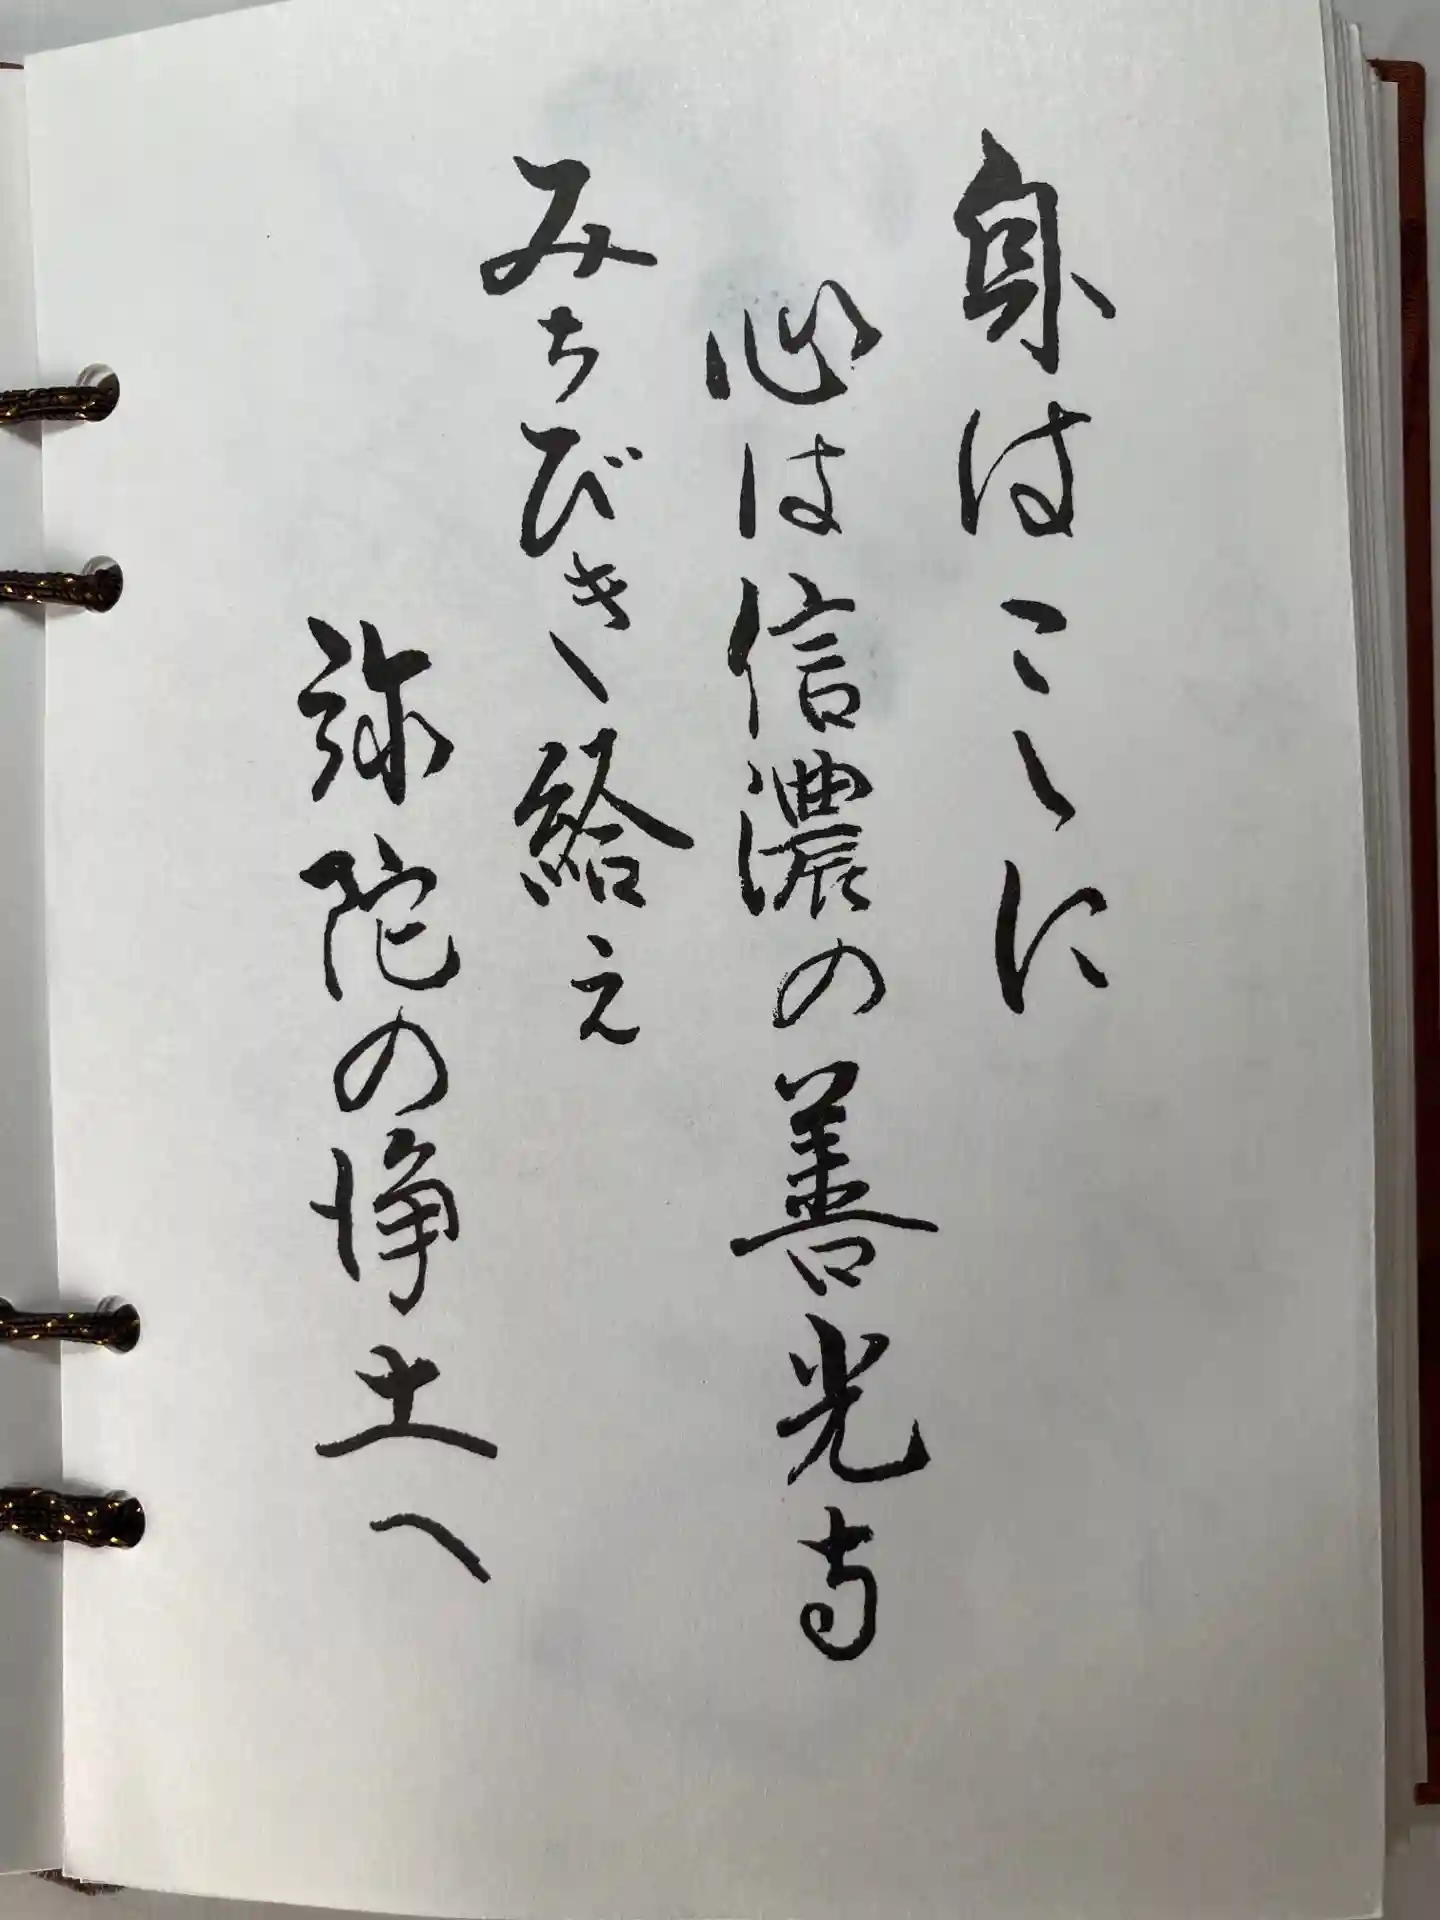 身はこゝに
心は信濃の善光寺
みちびき給え
弥陀の浄土へ